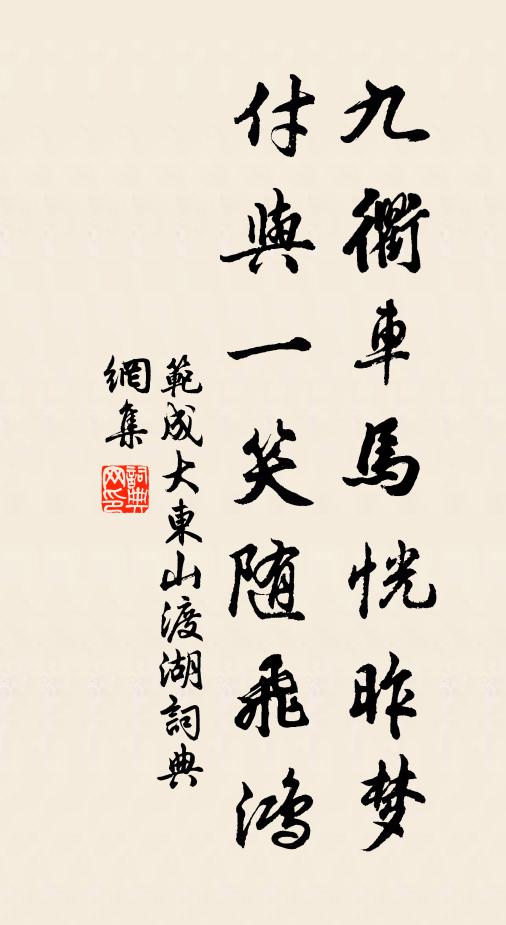 九衢車馬恍昨梦
付與一笑随飛鴻
範成大東山渡湖詞典
網集
詞典网印